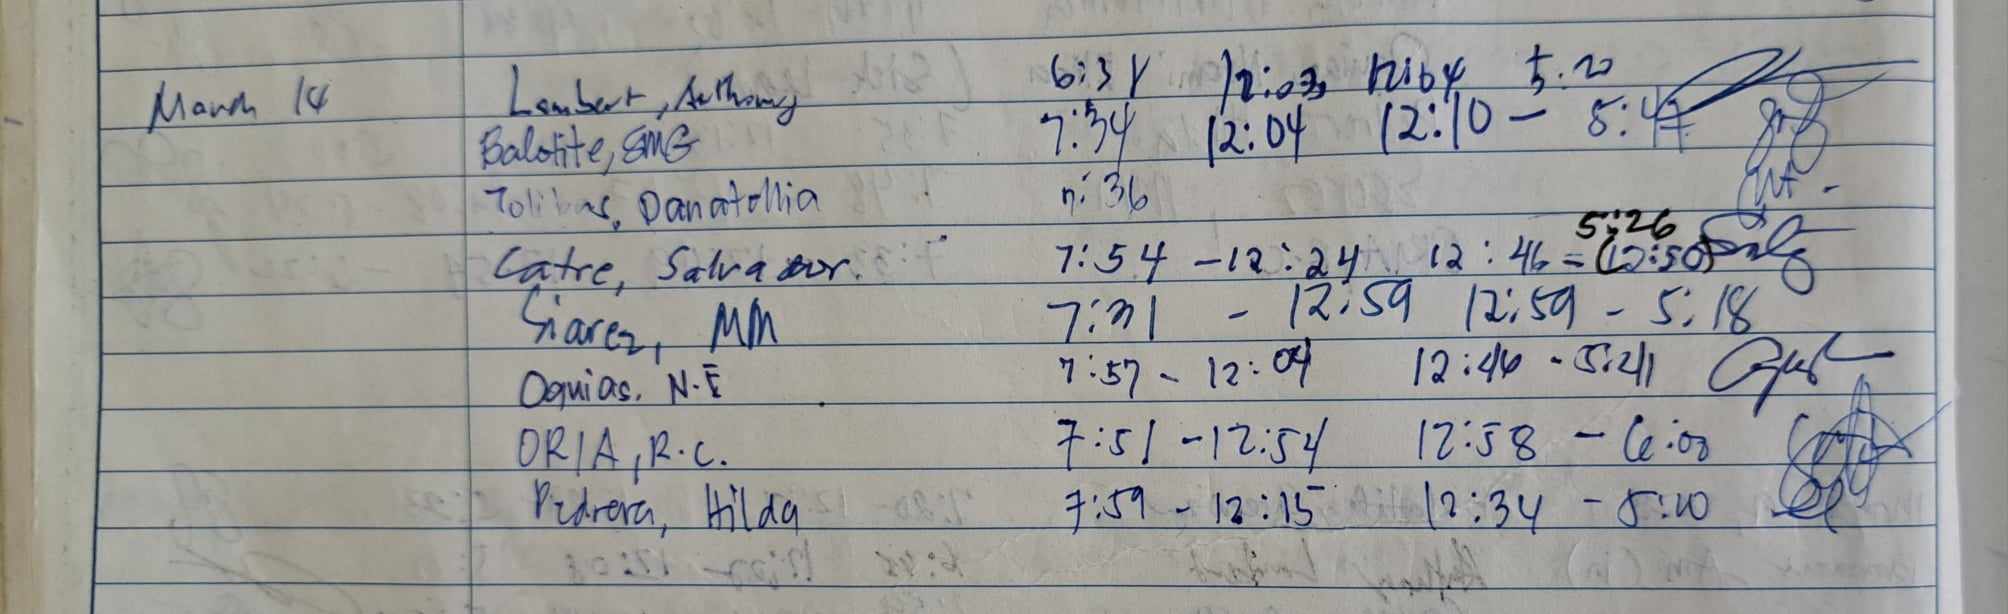 March 14 Lambert, Anthony 6:31 12:03 12:04 5:20
Balotite, EMG 7:34 12:04 12:10 - 5:47
Tolibas, Danatollia 7:36
5:26
Catre, Salvador. 7:54 - 12:24 12:46 - (12:50)
Siarez, MM 7:31 - 12:59 12:59 - 5:18
Oquias, N.E 7:57 - 12:04 12:46 - 5:21
ORIA, R.C. 7:51 - 12:54 12:58 - 6:00
Pidrera, Hilda 7:59 - 12:15 12:34 - 5:20